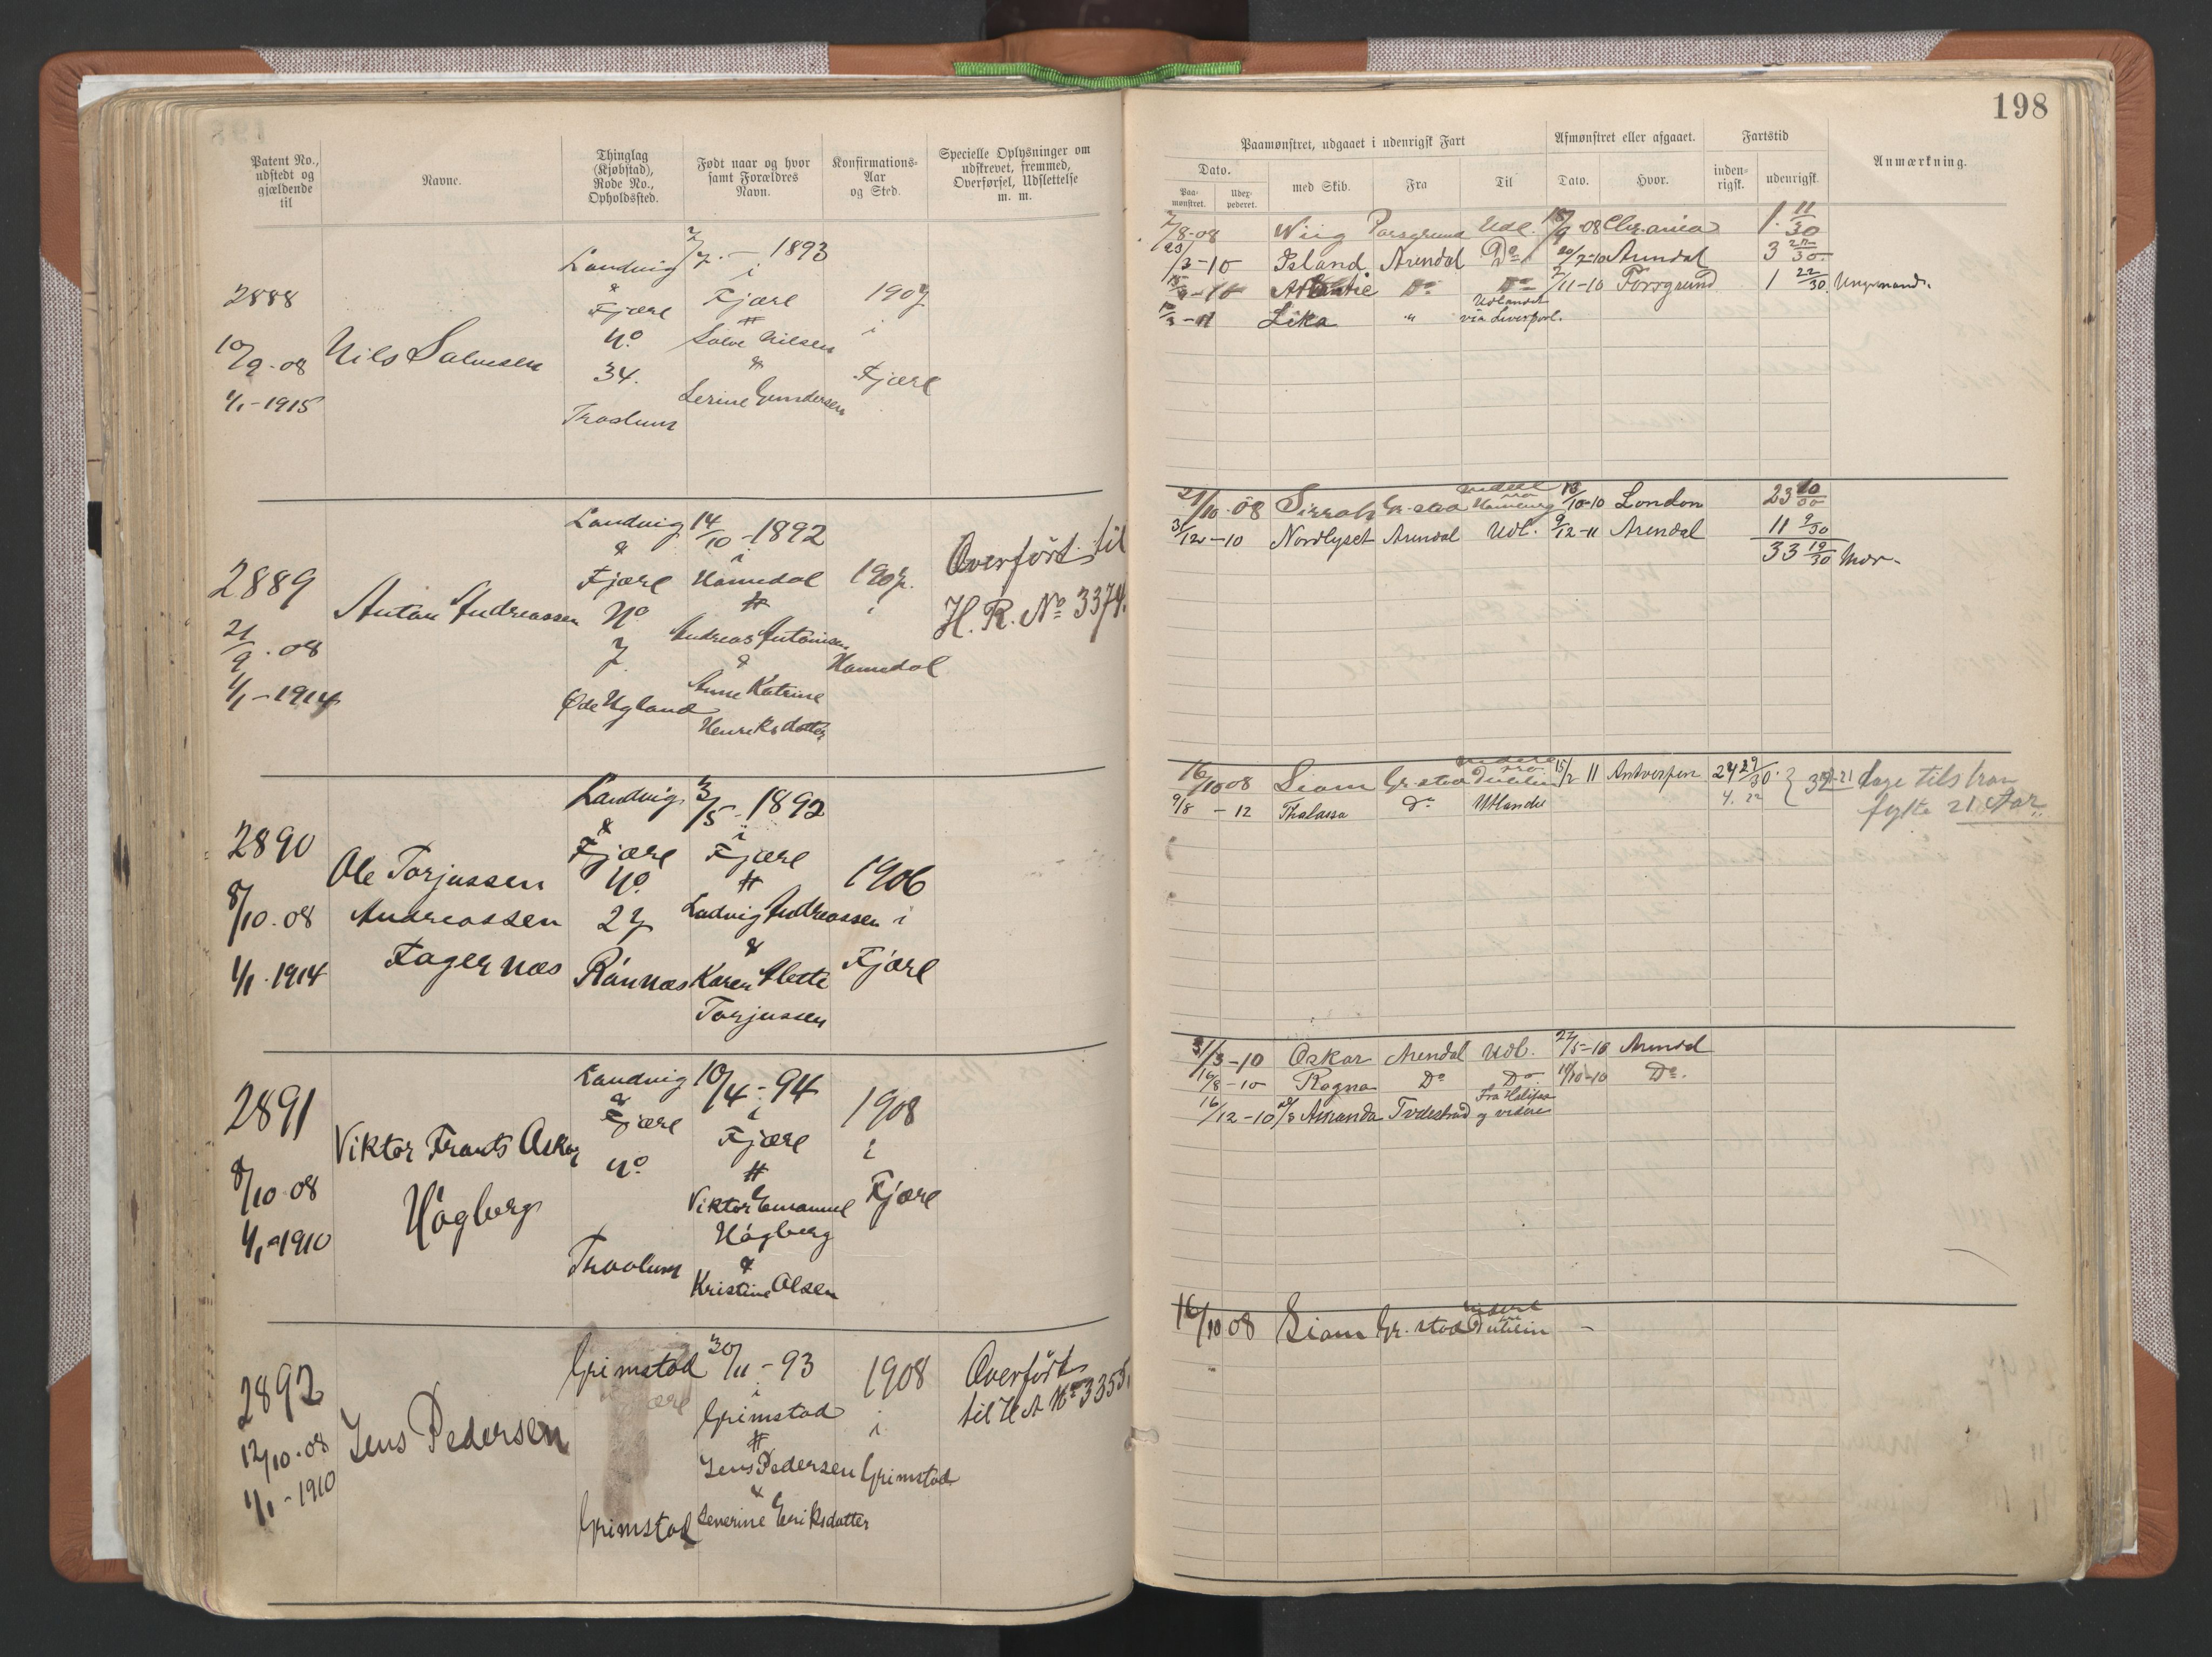 198
Patent No., udstedt og gjældende til
Navne.
Thinglag (Kjøbstad), Rode No., Opholdssted.
Født naar og hvor samt Forældres Navn.
Konfirmations-Aar og Sted.
Specielle Oplysninger om udskrevet, fremmed, Overførsel, Udslettelse m. m.
Paamønstret, udgaaet i udenrigsk Fart
Dato.
Paa-mønstret.
Udex-pederet.
med Skib.
Fra
Til
Afmønstret eller afgaaet.
Dato.
Hvor.
Fartstid
inden-rigsk.
udenrigsk.
Anmærkning.
2888
10/9-08
1/1-1915
Nils Salvesen
Landvig
&
Fjære
No
34.
Traslum
7/7 - 1893
i
Fjære
#
Salve Nilsen
&
Serine Gundersen
1907
i
Fjære
7/8-08 Wiig Porsgrund Udl. 18/9 08 Chr.ania 1. 11/30
23/3-10 Island Arendal Do 20/7-10 Arendal 3 27/30
Atlantic Do Do 7/11-10 Porsgrund 1 22/30. Ungmand.
Lika " Udlandet
via Liverpool.
2889
21/9.08
1/1-1914
Antan Andreassen
Landvig
&
Fjære
No
7
Øde Ugland
14/10-1892
i
Homedal
#
Andreas Antonisen
&
Anne Katrine
Henriksdatter
1907.
i
Homedal
Overført til
H. R. No 3374.
21/10-08 Sirrah Gr.stad videre
via Hamburg 13/10-10 London 23 10/30
31/12-10 Nordlyset Arendal Udl. 9/12-11 Arendal 11 9/30
33 19/30 Mor.
2890
8/10.08
1/1.1914
Ole Torjussen
Andreassen
Fagernæs
Landvig
&
Fjære
No
27
Rånnæs
3/5 - 1892
i
Fjære
#
Ludvig Andreassen
&
Karen Alette
Torjussen
1906
i
Fjære
16/10 08 Siam Gr.stad videre
via Dublin 15/2 11 Antverpen 27 29/30
9/8 - 12 Thalassa Do Utlandet 4. 22
fylte 21 Aar.
2891
8/10.08
1/1-1910
Viktor Frants Oskar
Högberg
Landvig
&
Fjære
No
Traslum
10/4-94
i
Fjære
#
Viktor Emanuel
Högberg
&
Kristine Olsen
1908
i
Fjære
31/3-10 Oskar Arendal Udl. 27/5-10 Arendal
16/8-10 Ragna Do Do 14/10-10 Do.
16/12-10 Amanda Tvedestrand Fra Halifax
og videre
2892
12/10.08
1/1-1910
Jens Pedersen
Grimstad
Grimstad
30/11-93
i
Grimstad
#
Jens Pedersen
&
Severine Eriksdatter
1908
i
Grimstad
Overført
til H A No 3353.
16/10 08 Siam Gr.stad videre
via Dublin -